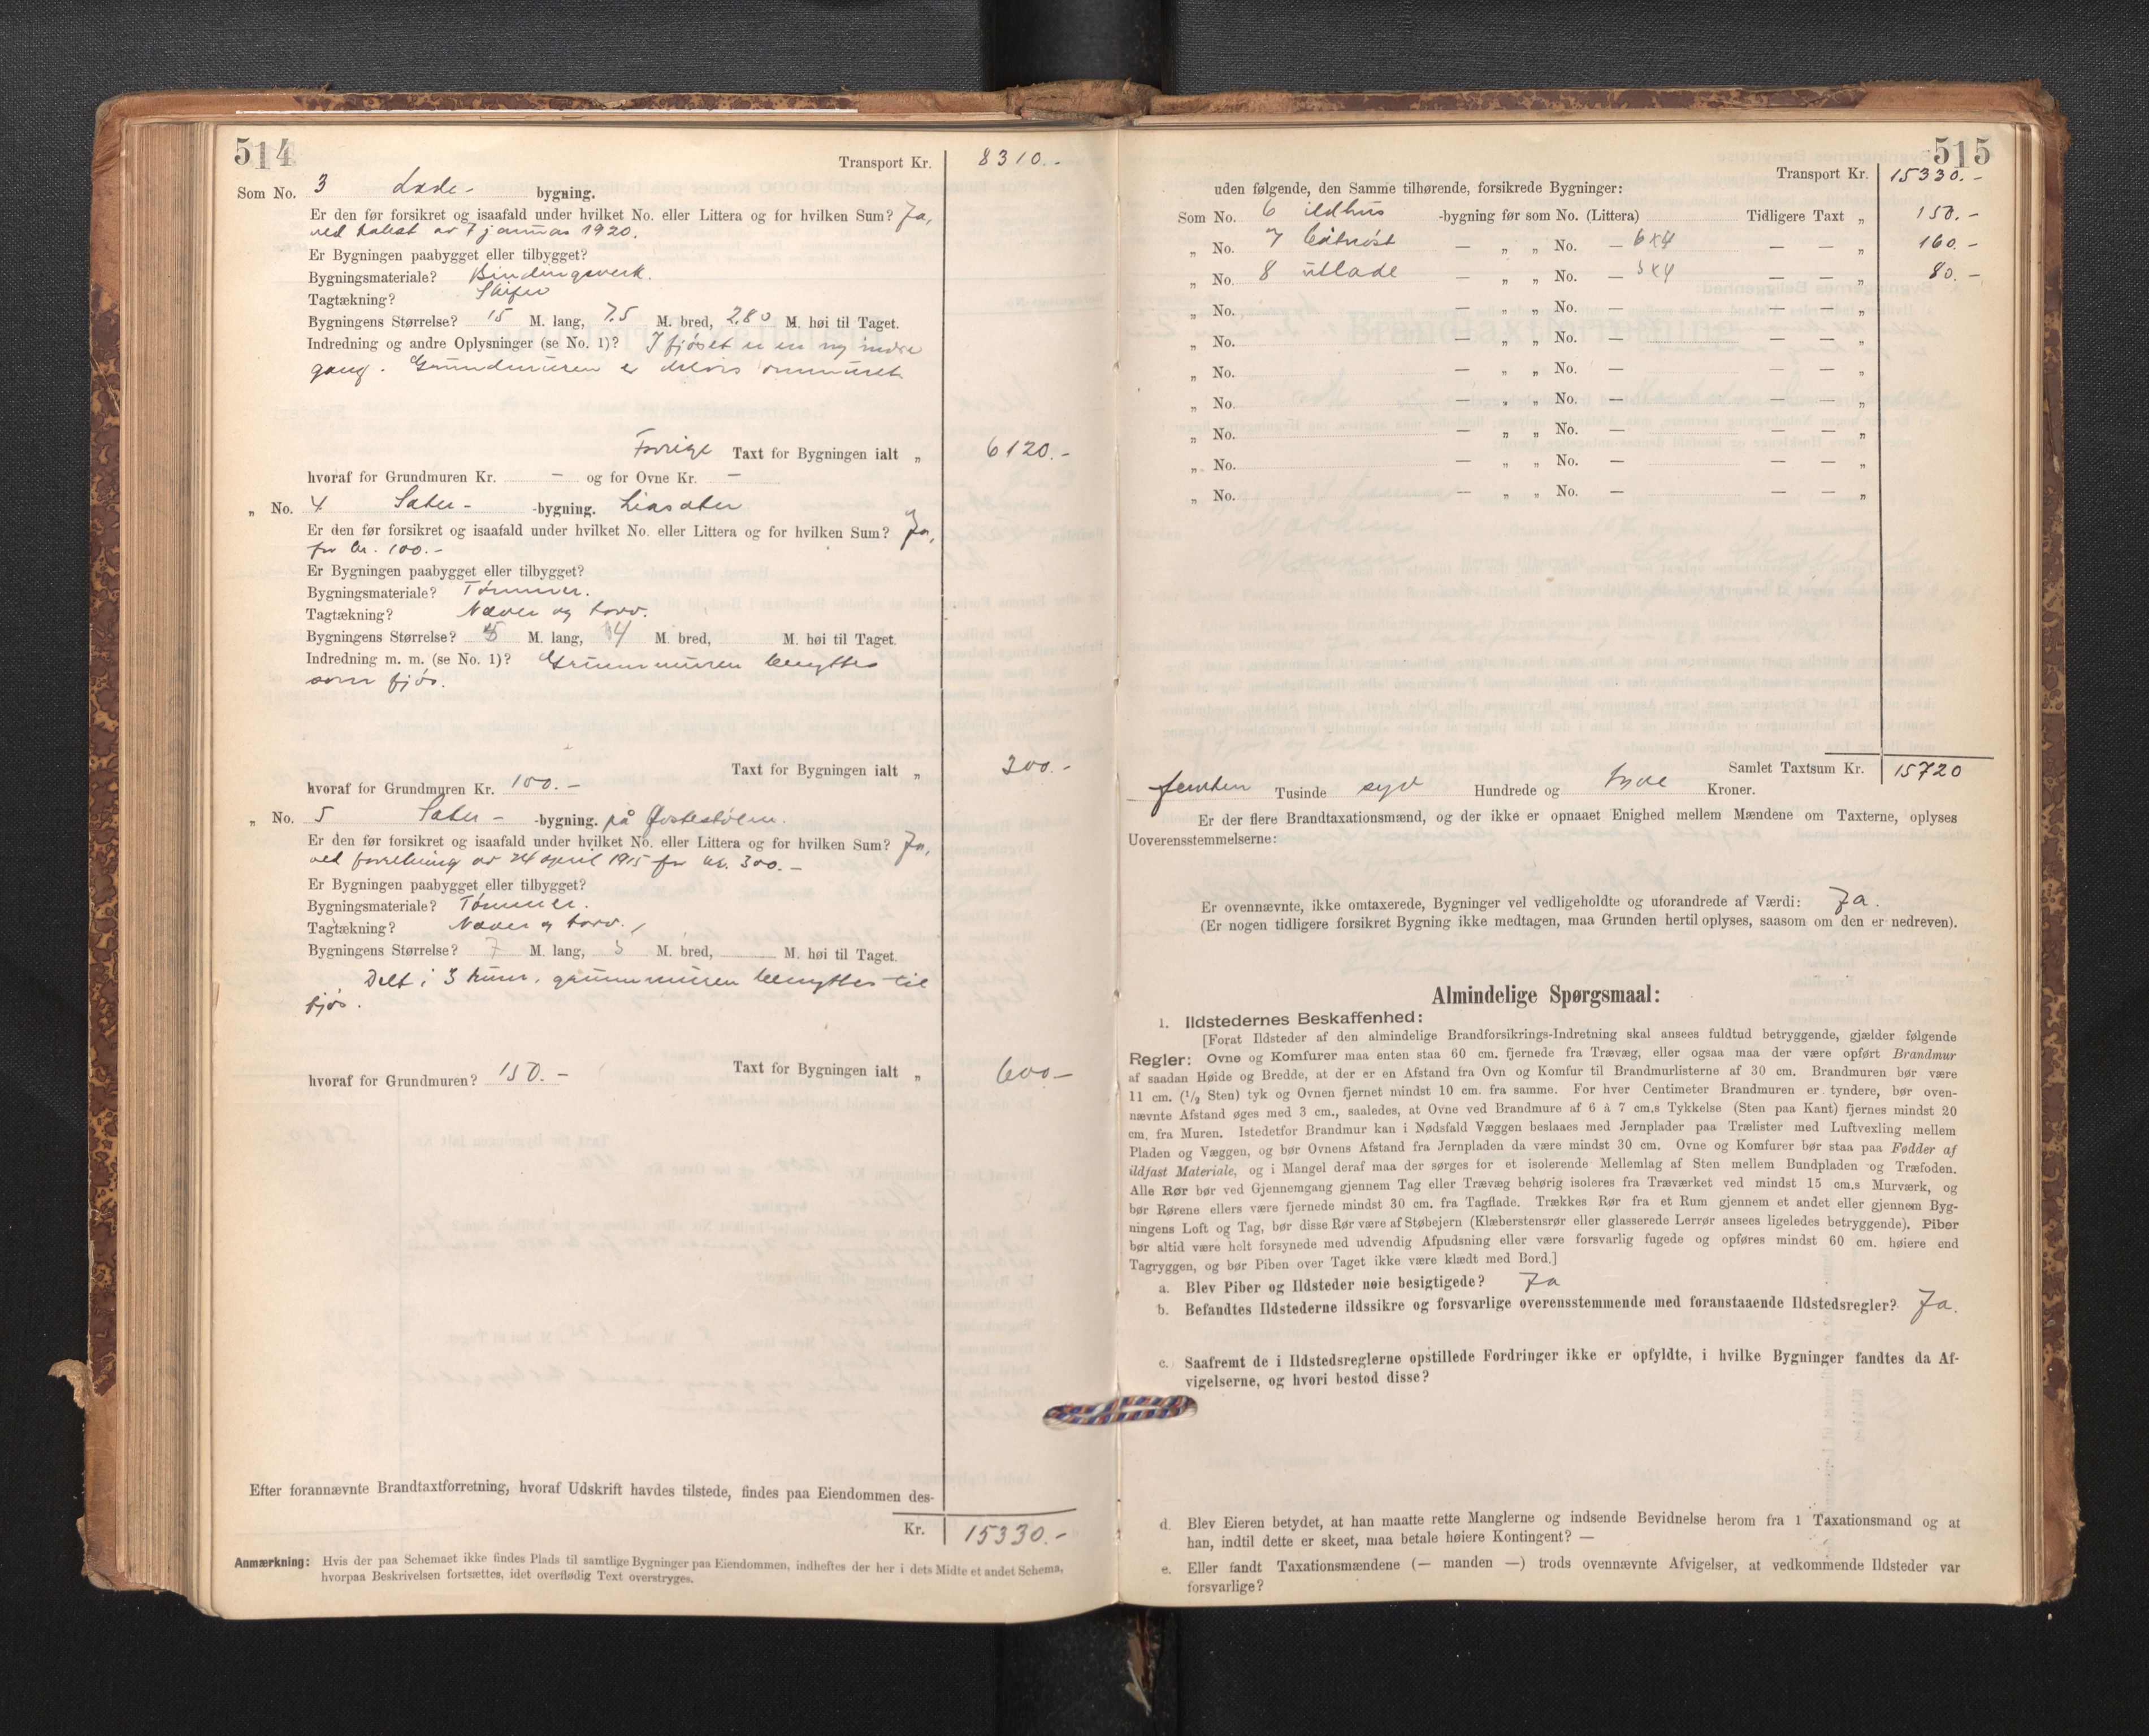 514
Transport Kr. 8310.-
Som No. 3 Lade- bygning.
Er den før forsikret og isaafald under hvilket No. eller Littera og for hvilken Sum? Ja,
ved takst av 7 januar 1920.
Er Bygningen paabygget eller tilbygget?
Bygningsmateriale? Bindingsverk.
Tagtækning? Skifer
Bygningens Størrelse? 15 M. lang, 7.5 M. bred, 2.80 M. høi til Taget.
Indredning og andre Oplysninger (se No. 1)? I fjøset er en ny indre
gang. Grundmuren er delvis ommuret.
Forrige Taxt for Bygningen ialt „ 6120.-
hvoraf for Grundmuren Kr. — og for Ovne Kr. —
„ No. 4 Sæter- -bygning. Liasæter
Er den før forsikret og isaafald under hvilket No. eller Littera og for hvilken Sum? Ja,
for kr. 100.-
Er Bygningen paabygget eller tilbygget?
Bygningsmateriale? Tømmer.
Tagtækning? Næver og torv.
Bygningens Størrelse? M. lang, 4 M. bred, M. høi til Taget.
Indredning m. m. (se No. 1)? Grunnmuren benyttes
som fjøs.
Taxt for Bygningen ialt „ 300.-
hvoraf for Grundmuren Kr. 100.-
„ No. 5 Sæter- -bygning. på
Er den før forsikret og isaafald under hvilket No. eller Littera og for hvilken Sum? Ja,
ved forretning av 24 april 1915 for kr. 300.-
Er Bygningen paabygget eller tilbygget?
Bygningsmateriale? Tømmer.
Tagtækning? Næver og torv.
Bygningens Størrelse? 7 M. lang, 5 M. bred, M. høi til Taget.
Delt i 3 rum, grunnmuren benyttes til
fjøs.
Taxt for Bygningen ialt „ 600.-
hvoraf for Grundmuren? 150.-
Efter forannævnte Brandtaxtforretning, hvoraf Udskrift havdes tilstede, findes paa Eiendommen des-
Kr. 15330.-
Anmærkning: Hvis der paa Schemaet ikke findes Plads til samtlige Bygninger paa Eiendommen, indheftes der her i dets Midte et andet Schema,
hvorpaa Beskrivelsen fortsættes, idet overflødig Text overstryges.
515
Transport Kr. 15330.-
uden følgende, den Samme tilhørende, forsikrede Bygninger:
Som No. 6 ildhus -bygning før som No. (Littera) Tidligere Taxt „ 150.-
„ No. 7 — „ „ No. — 6x4 — — „ 160.-
„ No. 8 utlade — „ „ No. — 5x4 — — „ 80.-
„ No. — „ „ No. — — — „
„ No. — „ „ No. — — — „
„ No. — „ „ No. — — — „
„ No. — „ „ No. — — — „
„ No. — „ „ No. — — — „
„ No. — „ „ No. — — — „
„ No. — „ „ No. — — — „
Samlet Taxtsum Kr. 15720
femten Tusinde syv Hundrede og tyve Kroner.
Er der flere Brandtaxationsmænd, og der ikke er opnaaet Enighed mellem Mændene om Taxterne, oplyses
Uoverensstemmelserne:
Er ovennævnte, ikke omtaxerede, Bygninger vel vedligeholdte og uforandrede af Værdi: Ja.
(Er nogen tidligere forsikret Bygning ikke medtagen, maa Grunden hertil oplyses, saasom om den er nedreven).
Almindelige Spørgsmaal:
1. Ildstedernes Beskaffenhed:
[Forat Ildsteder af den almindelige Brandforsikrings-Indretning skal ansees fuldtud betryggende, gjælder følgende
Regler: Ovne og Komfurer maa enten staa 60 cm. fjernede fra Trævæg, eller ogsaa maa der være opført Brandmur
af saadan Høide og Bredde, at der er en Afstand fra Ovn og Komfur til Brandmurlisterne af 30 cm. Brandmuren bør være
11 cm. (1/2 Sten) tyk og Ovnen fjernet mindst 10 cm. fra samme. For hver Centimeter Brandmuren er tyndere, bør oven-
nævnte Afstand øges med 3 cm., saaledes, at Ovne ved Brandmure af 6 à 7 cm.s Tykkelse (Sten paa Kant) fjernes mindst 20
cm. fra Muren. Istedetfor Brandmur kan i Nødsfald Væggen beslaaes med Jernplader paa Trælister med Luftvexling mellem
Pladen og Væggen, og bør Ovnens Afstand fra Jernpladen da være mindst 30 cm. Ovne og Komfurer bør staa paa Fødder af
ildfast Materiale, og i Mangel deraf maa der sørges for et isolerende Mellemlag af Sten mellem Bundpladen og Træfoden.
Alle Rør bør ved Gjennemgang gjennem Tag eller Trævæg behørig isoleres fra Træværket ved mindst 15 cm.s Murværk, og
bør Rørene ellers være fjernede mindst 30 cm. fra Tagflade. Trækkes Rør fra et Rum gjennem et andet eller gjennem Byg-
ningens Loft og Tag, bør disse Rør være af Støbejern (Klæberstensrør eller glasserede Lerrør ansees ligeledes betryggende). Piber
bør altid være helt forsynede med udvendig Afpudsning eller være forsvarlig fugede og opføres mindst 60 cm. høiere end
Tagryggen, og bør Piben over Taget ikke være klædt med Bord.]
a. Blev Piber og Ildsteder nøie besigtigede? Ja
b. Befandtes Ildstederne ildssikre og forsvarlige overensstemmende med foranstaaende Ildstedsregler? Ja.
c. Saafremt de i Ildstedsreglerne opstillede Fordringer ikke er opfyldte, i hvilke Bygninger fandtes da Af-
vigelserne, og hvori bestod disse?
d. Blev Eieren betydet, at han maatte rette Manglerne og indsende Bevidnelse herom fra 1 Taxationsmand og at
han, indtil dette er skeet, maa betale høiere Kontingent? —
e. Eller fandt Taxationsmændene (— manden —) trods ovennævnte Afvigelser, at vedkommende Ildsteder var
forsvarlige?